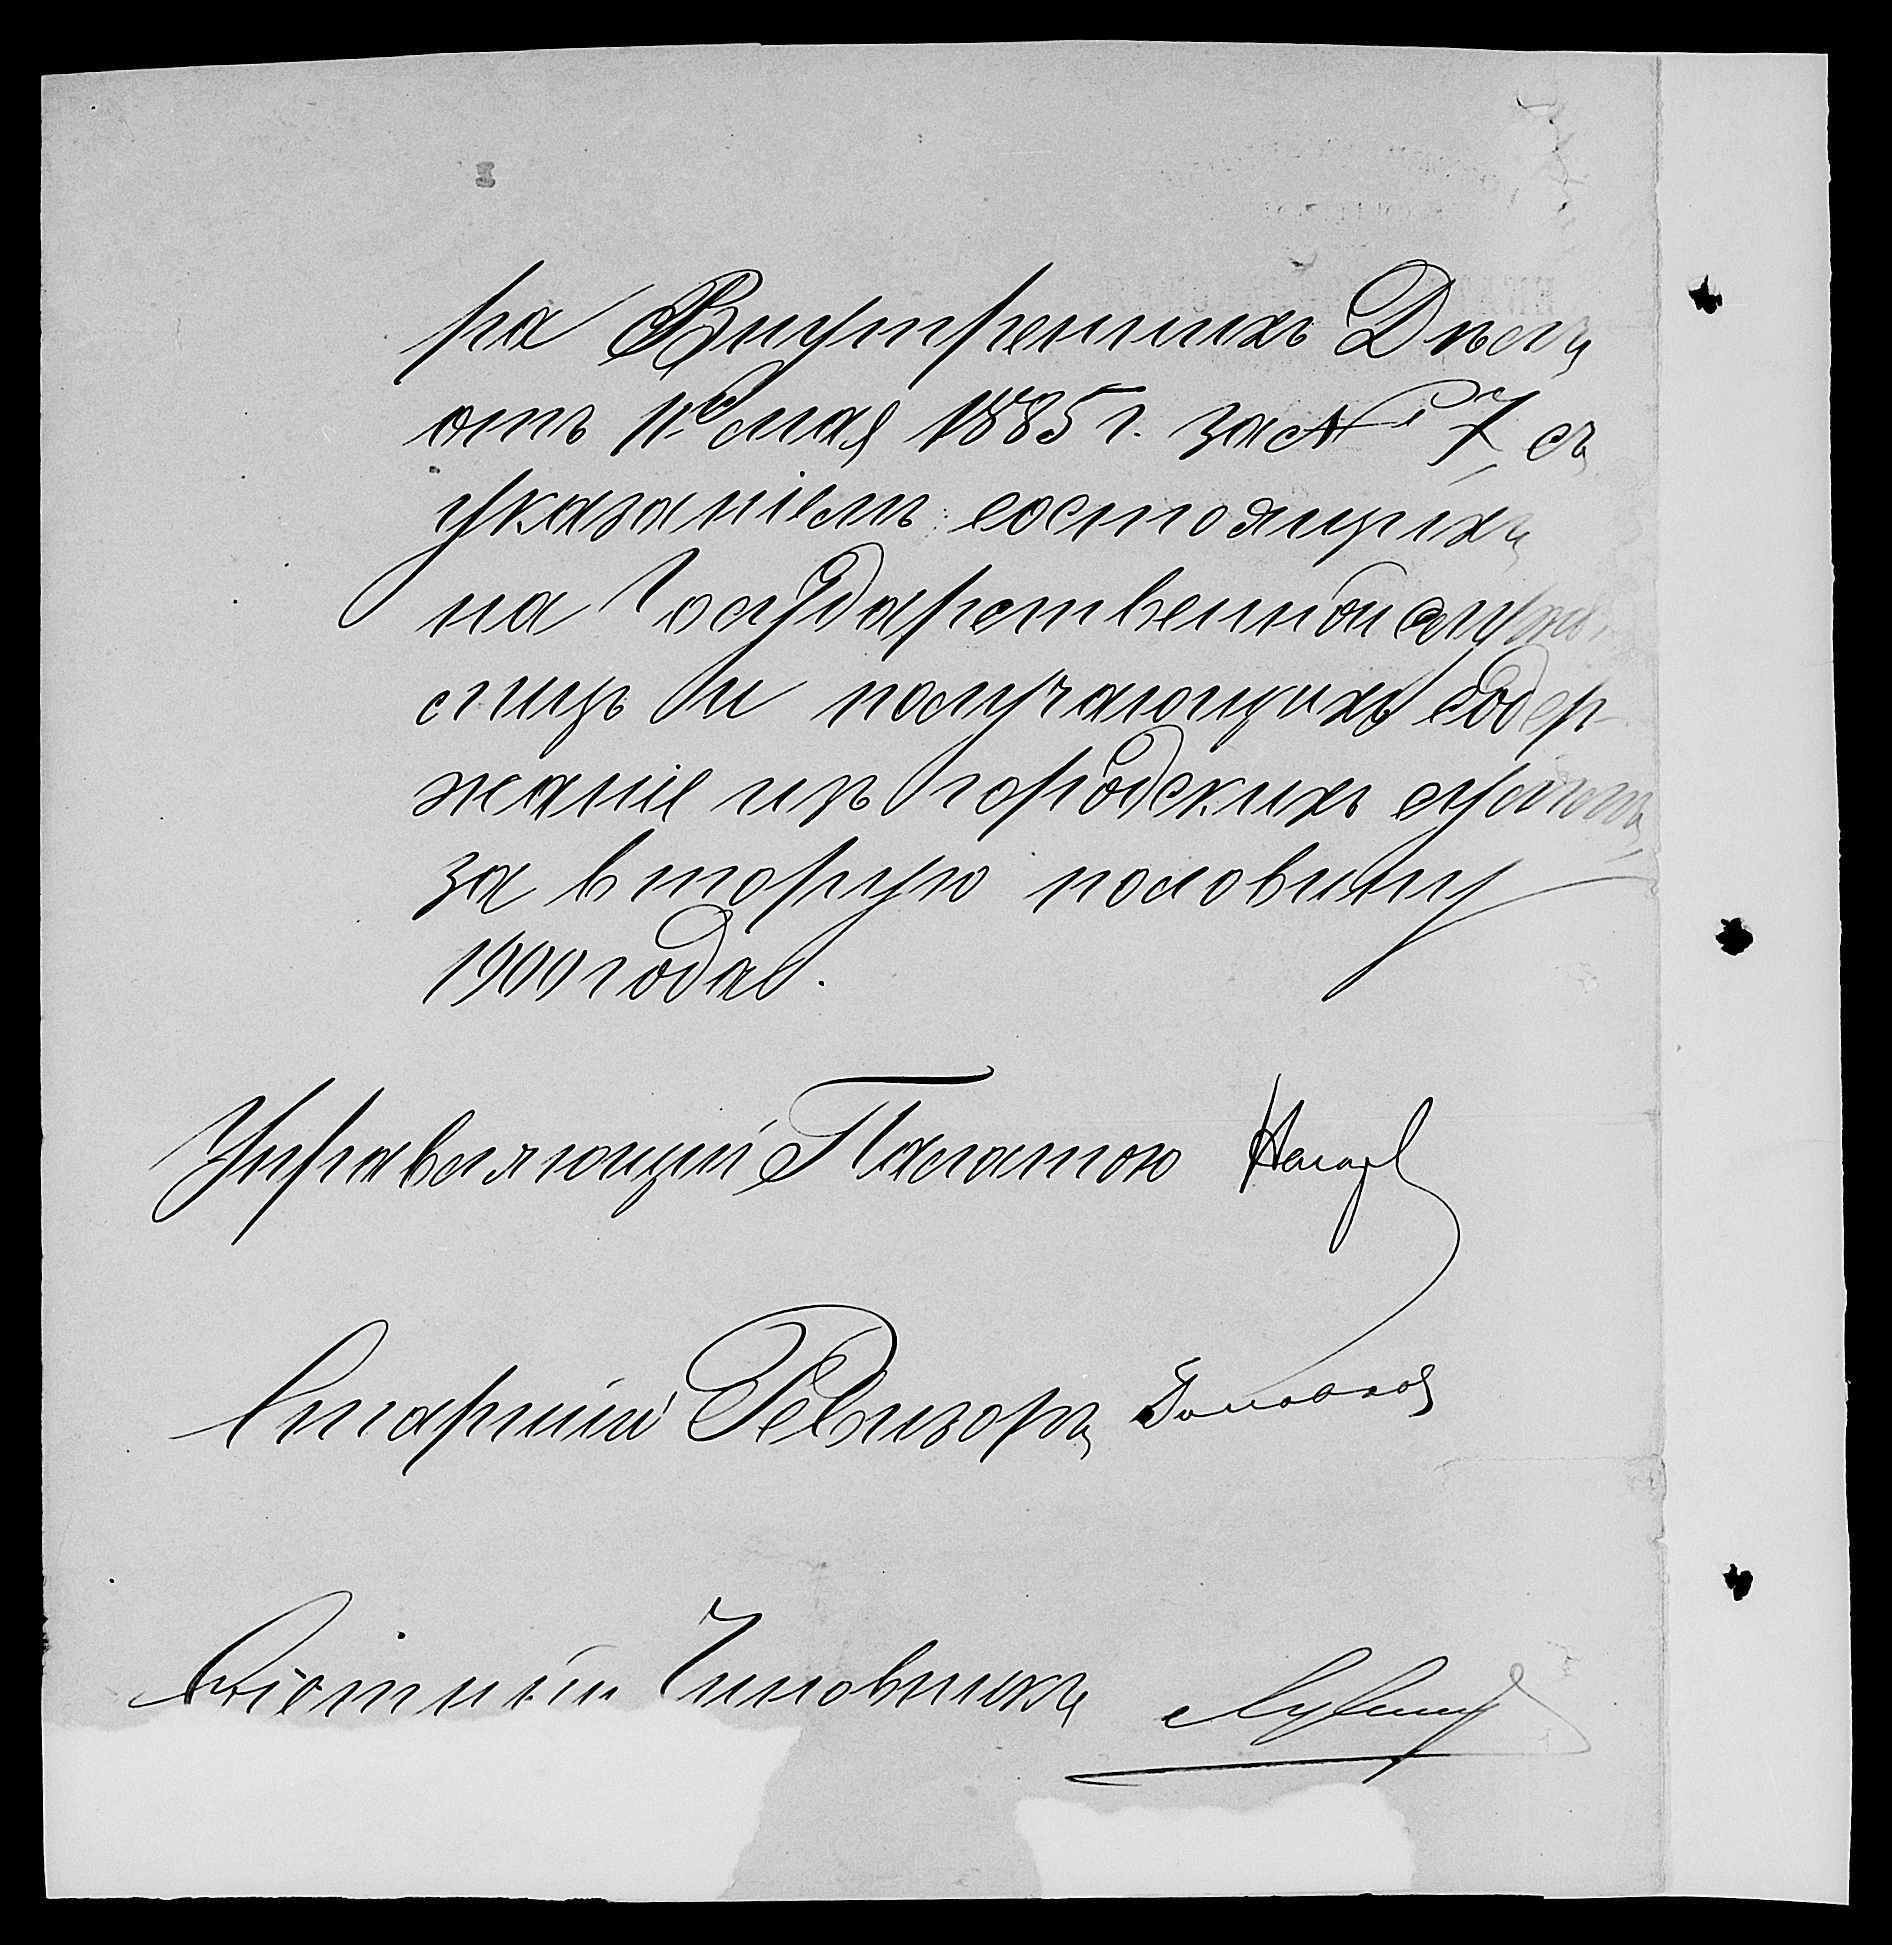 ра Внутреннихъ Дѣлъ
отъ 11го мая 1885 г. за № 7, съ
указаніемъ состоящихъ
на Государственной служ
лицъ и получающихъ содер-
жаніе изъ городскихъ суммъ,
за вторую половину
1900 года.
Управляющій Палатою
Старшій Ревизоръ
Счетный Чиновникъ